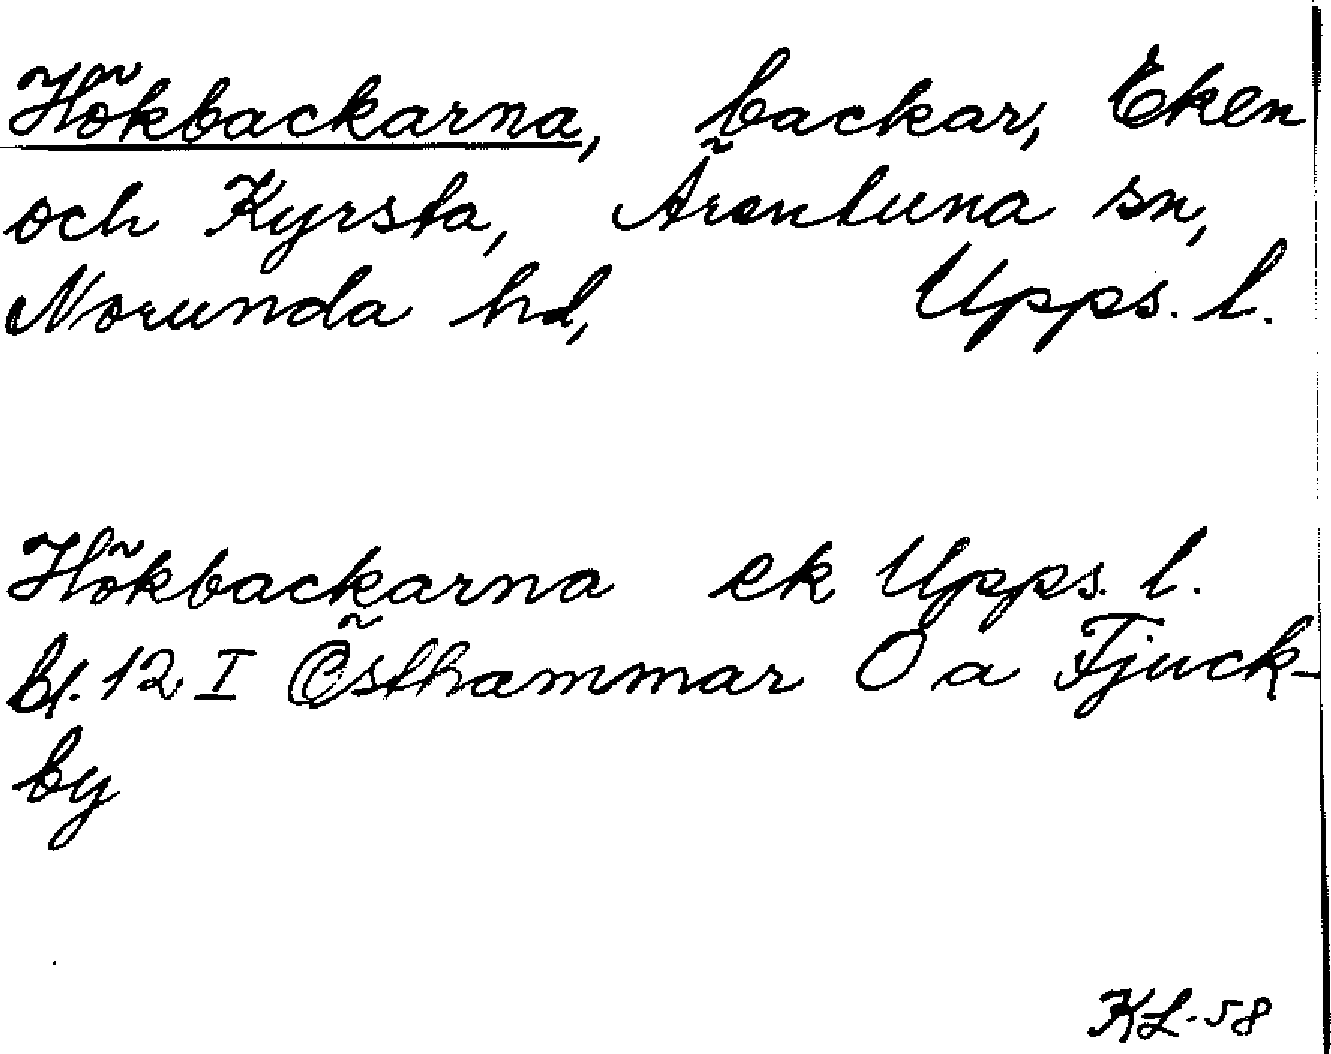 Hökbackarna, backar, Eken
och Kyrsta, Ärentuna sn,
Norunda hd, Upps. l.
Hökbackarna ek Upps. l.
bl. 12 I Östhammar Ö a Fjuck-
by
KL-58